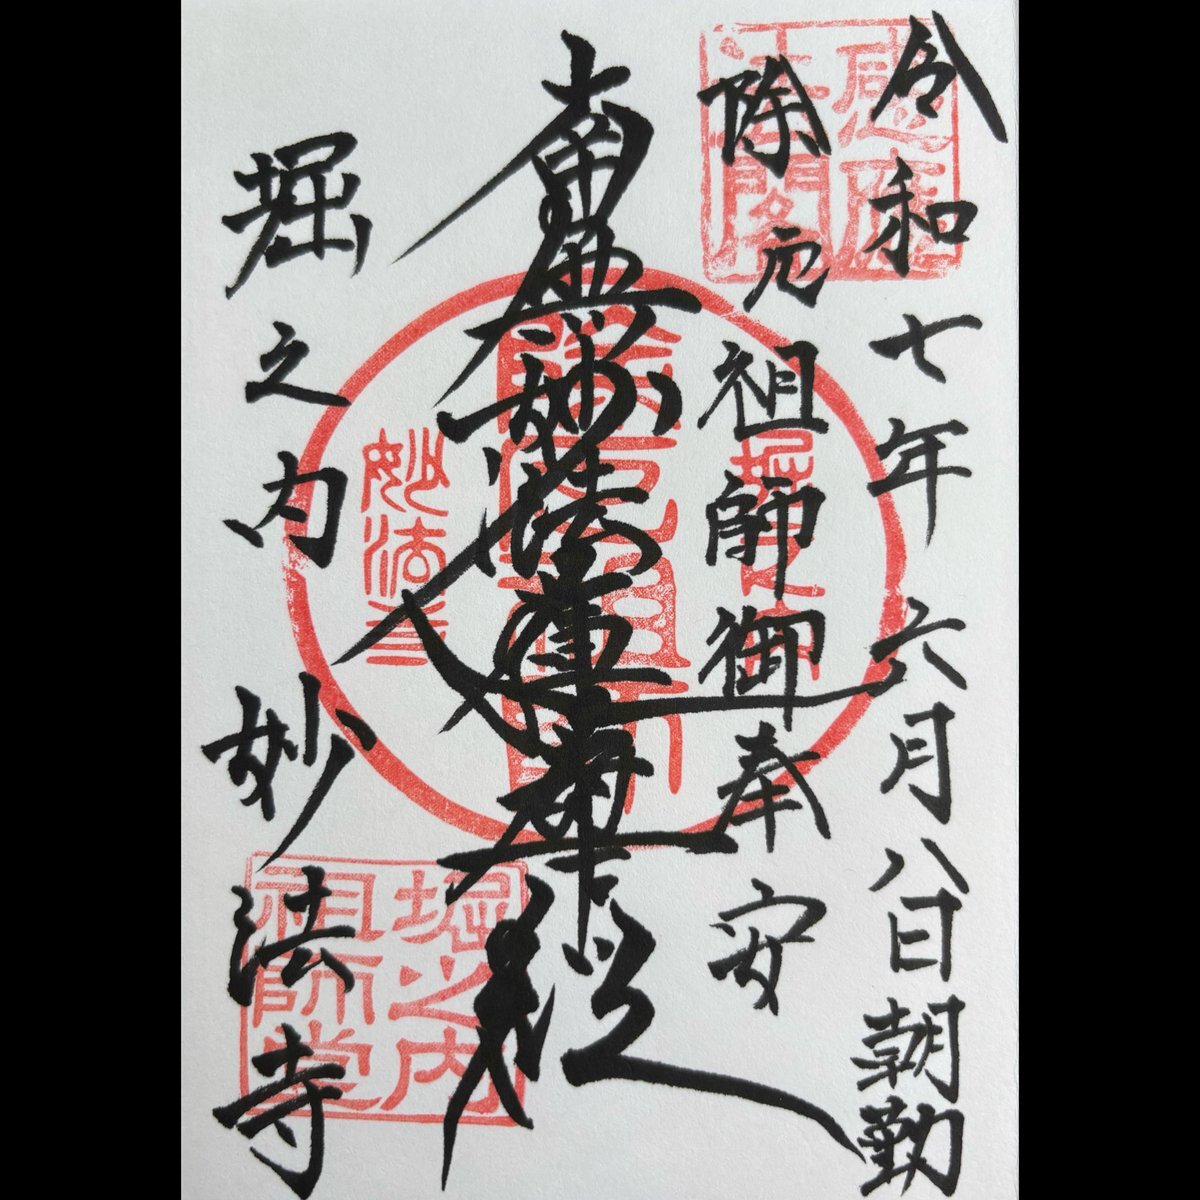 令和七年六月八日朝勤
除厄祖師御奉安
南無妙法蓮華経
堀之内妙法寺
感應
法閣
堀之内
除厄祖師
妙法寺
堀之内
祖師堂